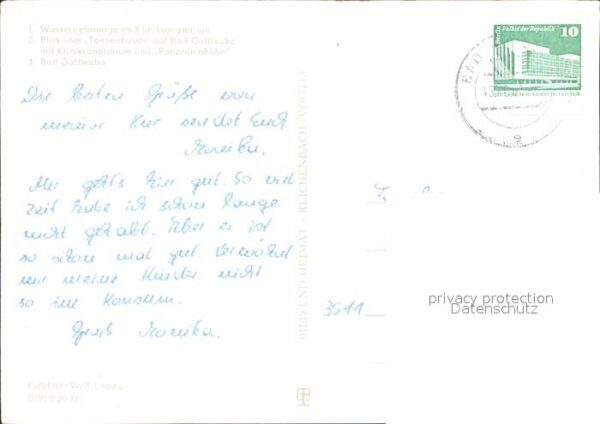 1. Wassertretanlage im Kliniksanatorium
2. Blick vom „Tannenbusch" auf Bad Gottleuba
mit Kliniksanatorium und „Panoramahöhe"
3. Bad Gottleuba
Die besten Grüße von
meiner Kur sendet Euch
Monika.
Mir geht's hier gut. So viel
Zeit habe ich schon lange
nicht gehabt. Aber es ist
so schon mal gut. Verwöhnt
mir meine Kinder nicht
so im
Gruß Monika.
Farbfoto: Wolf, Leipzig
DDR 0,20 M
BILD UND HEIMAT · REICHENBACH (VOGTL)
Berlin Palast der Republik 10
BAD
3511
privacy protection
Datenschutz